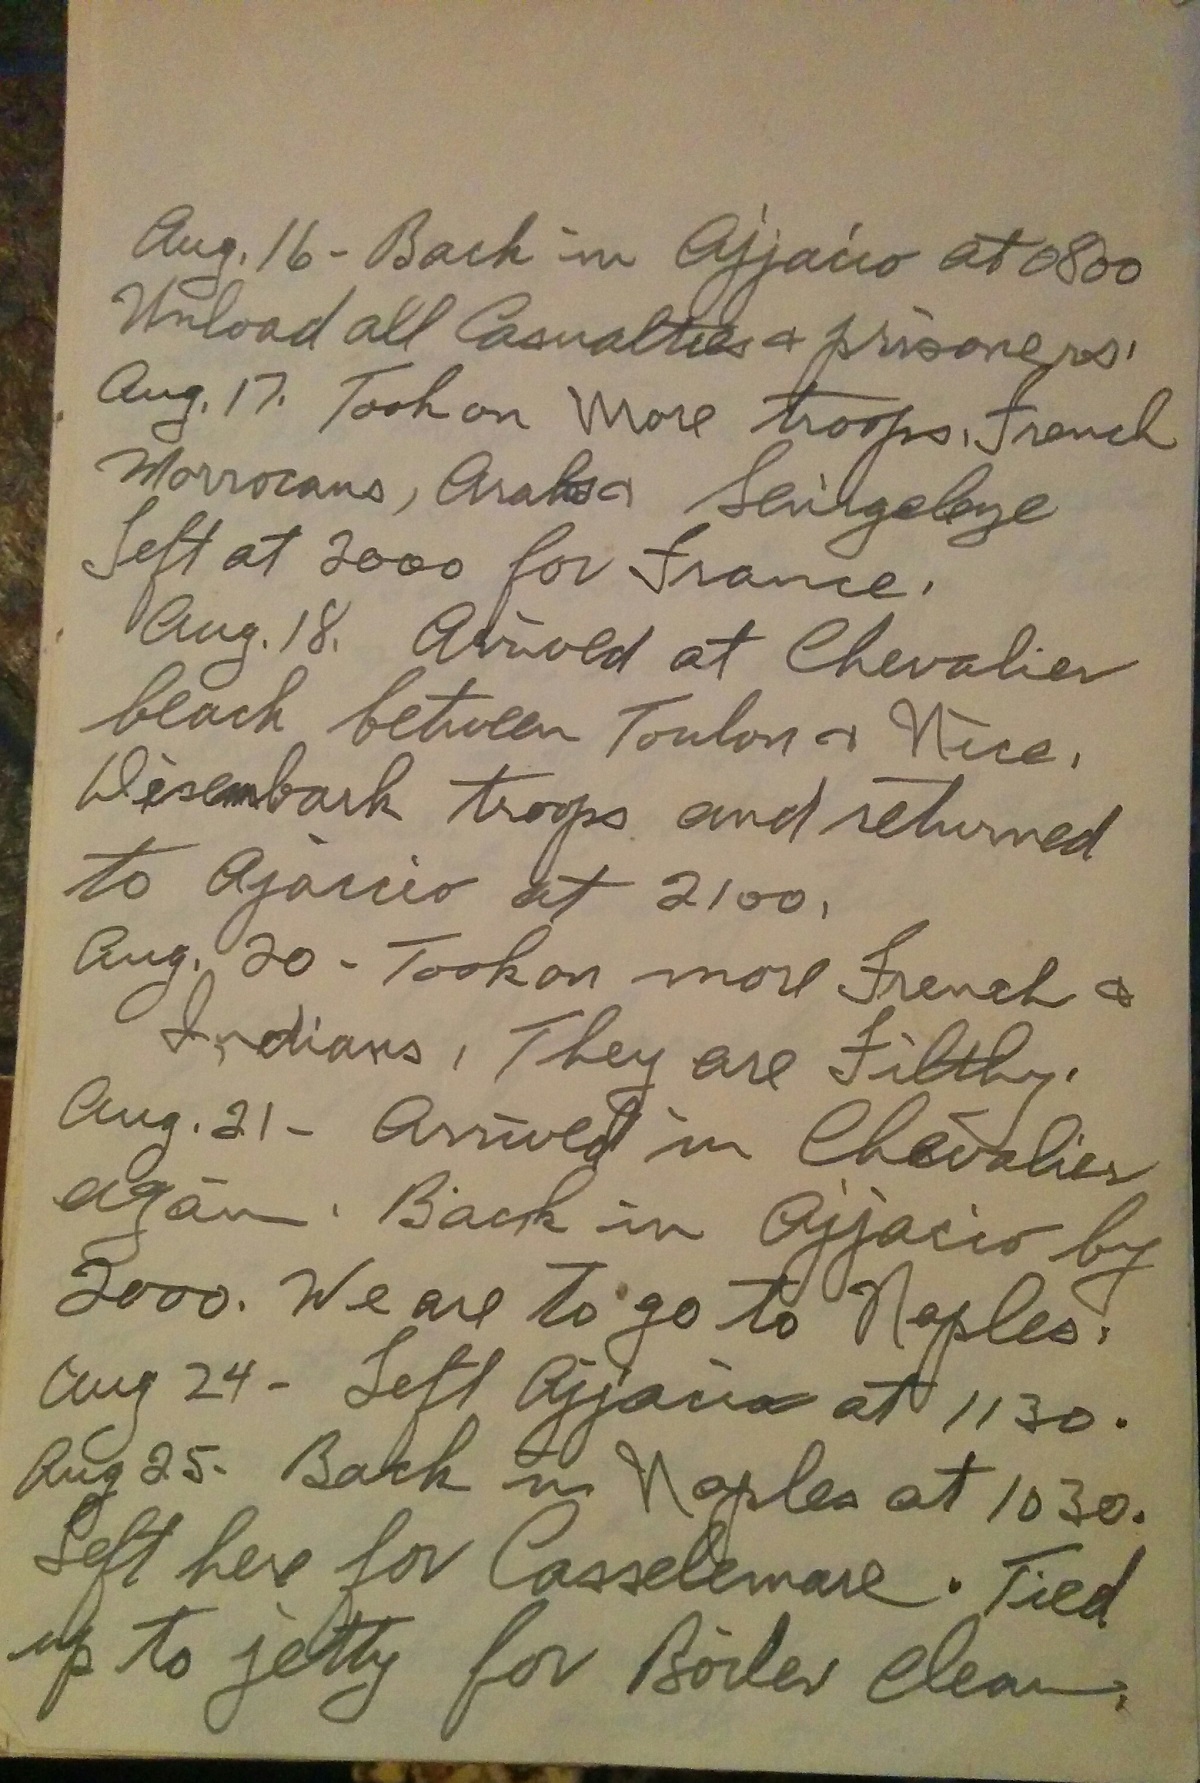 Aug. 16 - Back in Ajjacio at 0800
Unload all Casualties & prisoners.
Aug. 17. Took on More troops, French
Morrocans, Arabs & Seingeleze
Left at 2000 for France.
Aug. 18. Arrived at Chevalier
beach between Toulon & Nice.
Disembark troops and returned
to Ajaccio at 2100.
Aug. 20 - Took on more French &
Indians, They are Filthy.
Aug. 21 - Arrived in Chevalier
again. Back in Ajjacio by
2000. We are to go to Naples.
Aug 24 - Left Ajjacio at 1130.
Aug 25 - Back in Naples at 1030.
Left here for Casselemare. Tied
up to jetty for Boiler Clean.